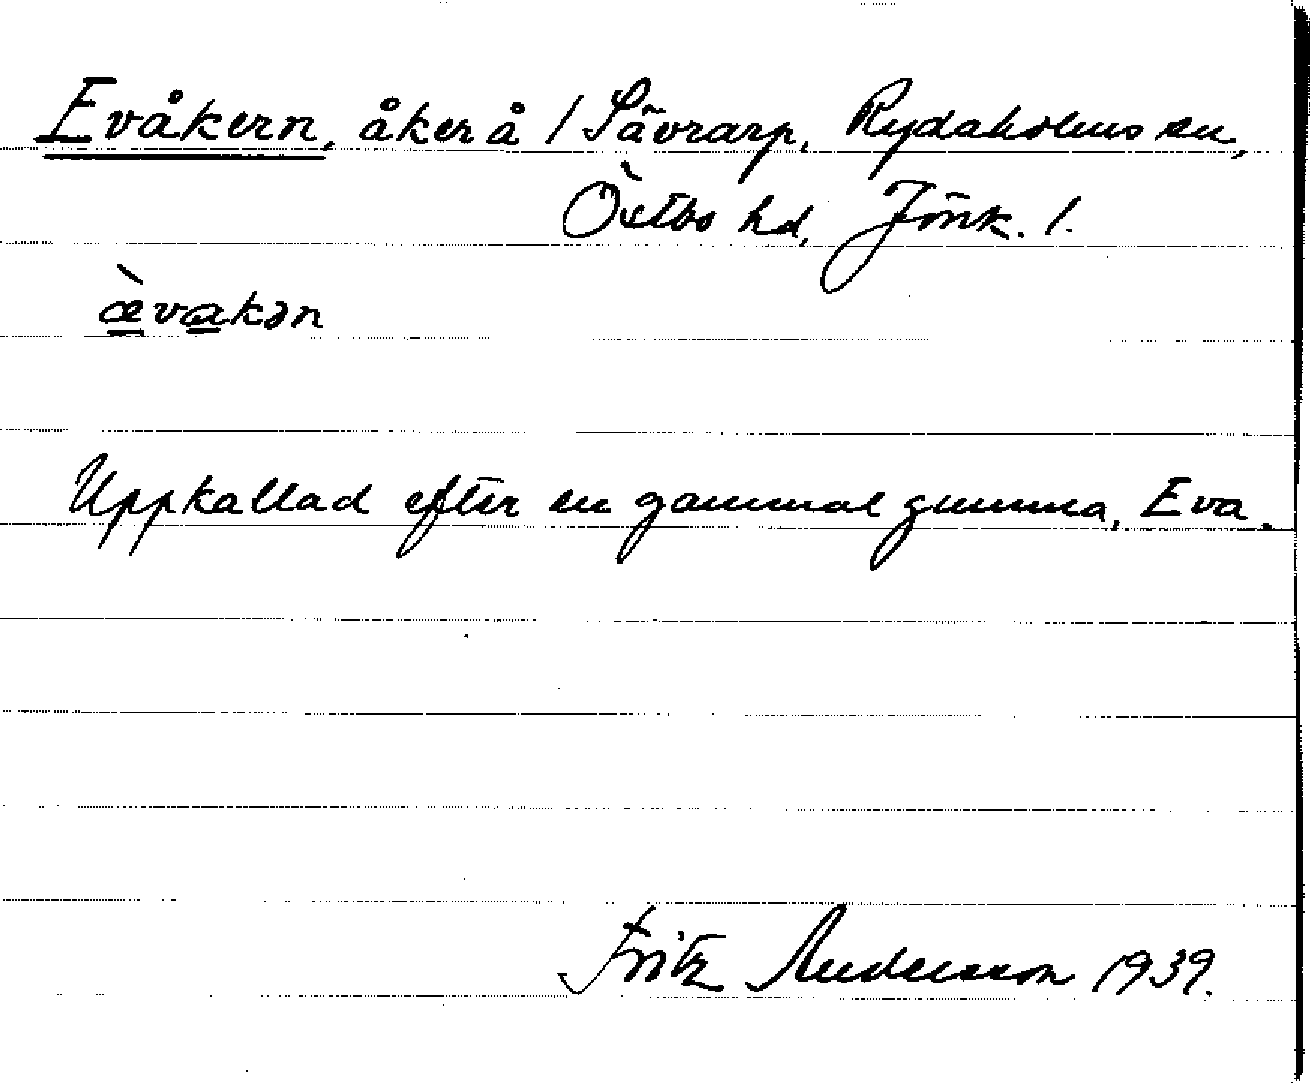 Evåkern, åker å 1 Sävrarp, Rydaholms sn,
Östbo hd, Jönk. l.
æ̀vakən
Uppkallad efter en gammal gumma, Eva.
Fritz Andersson 1939.